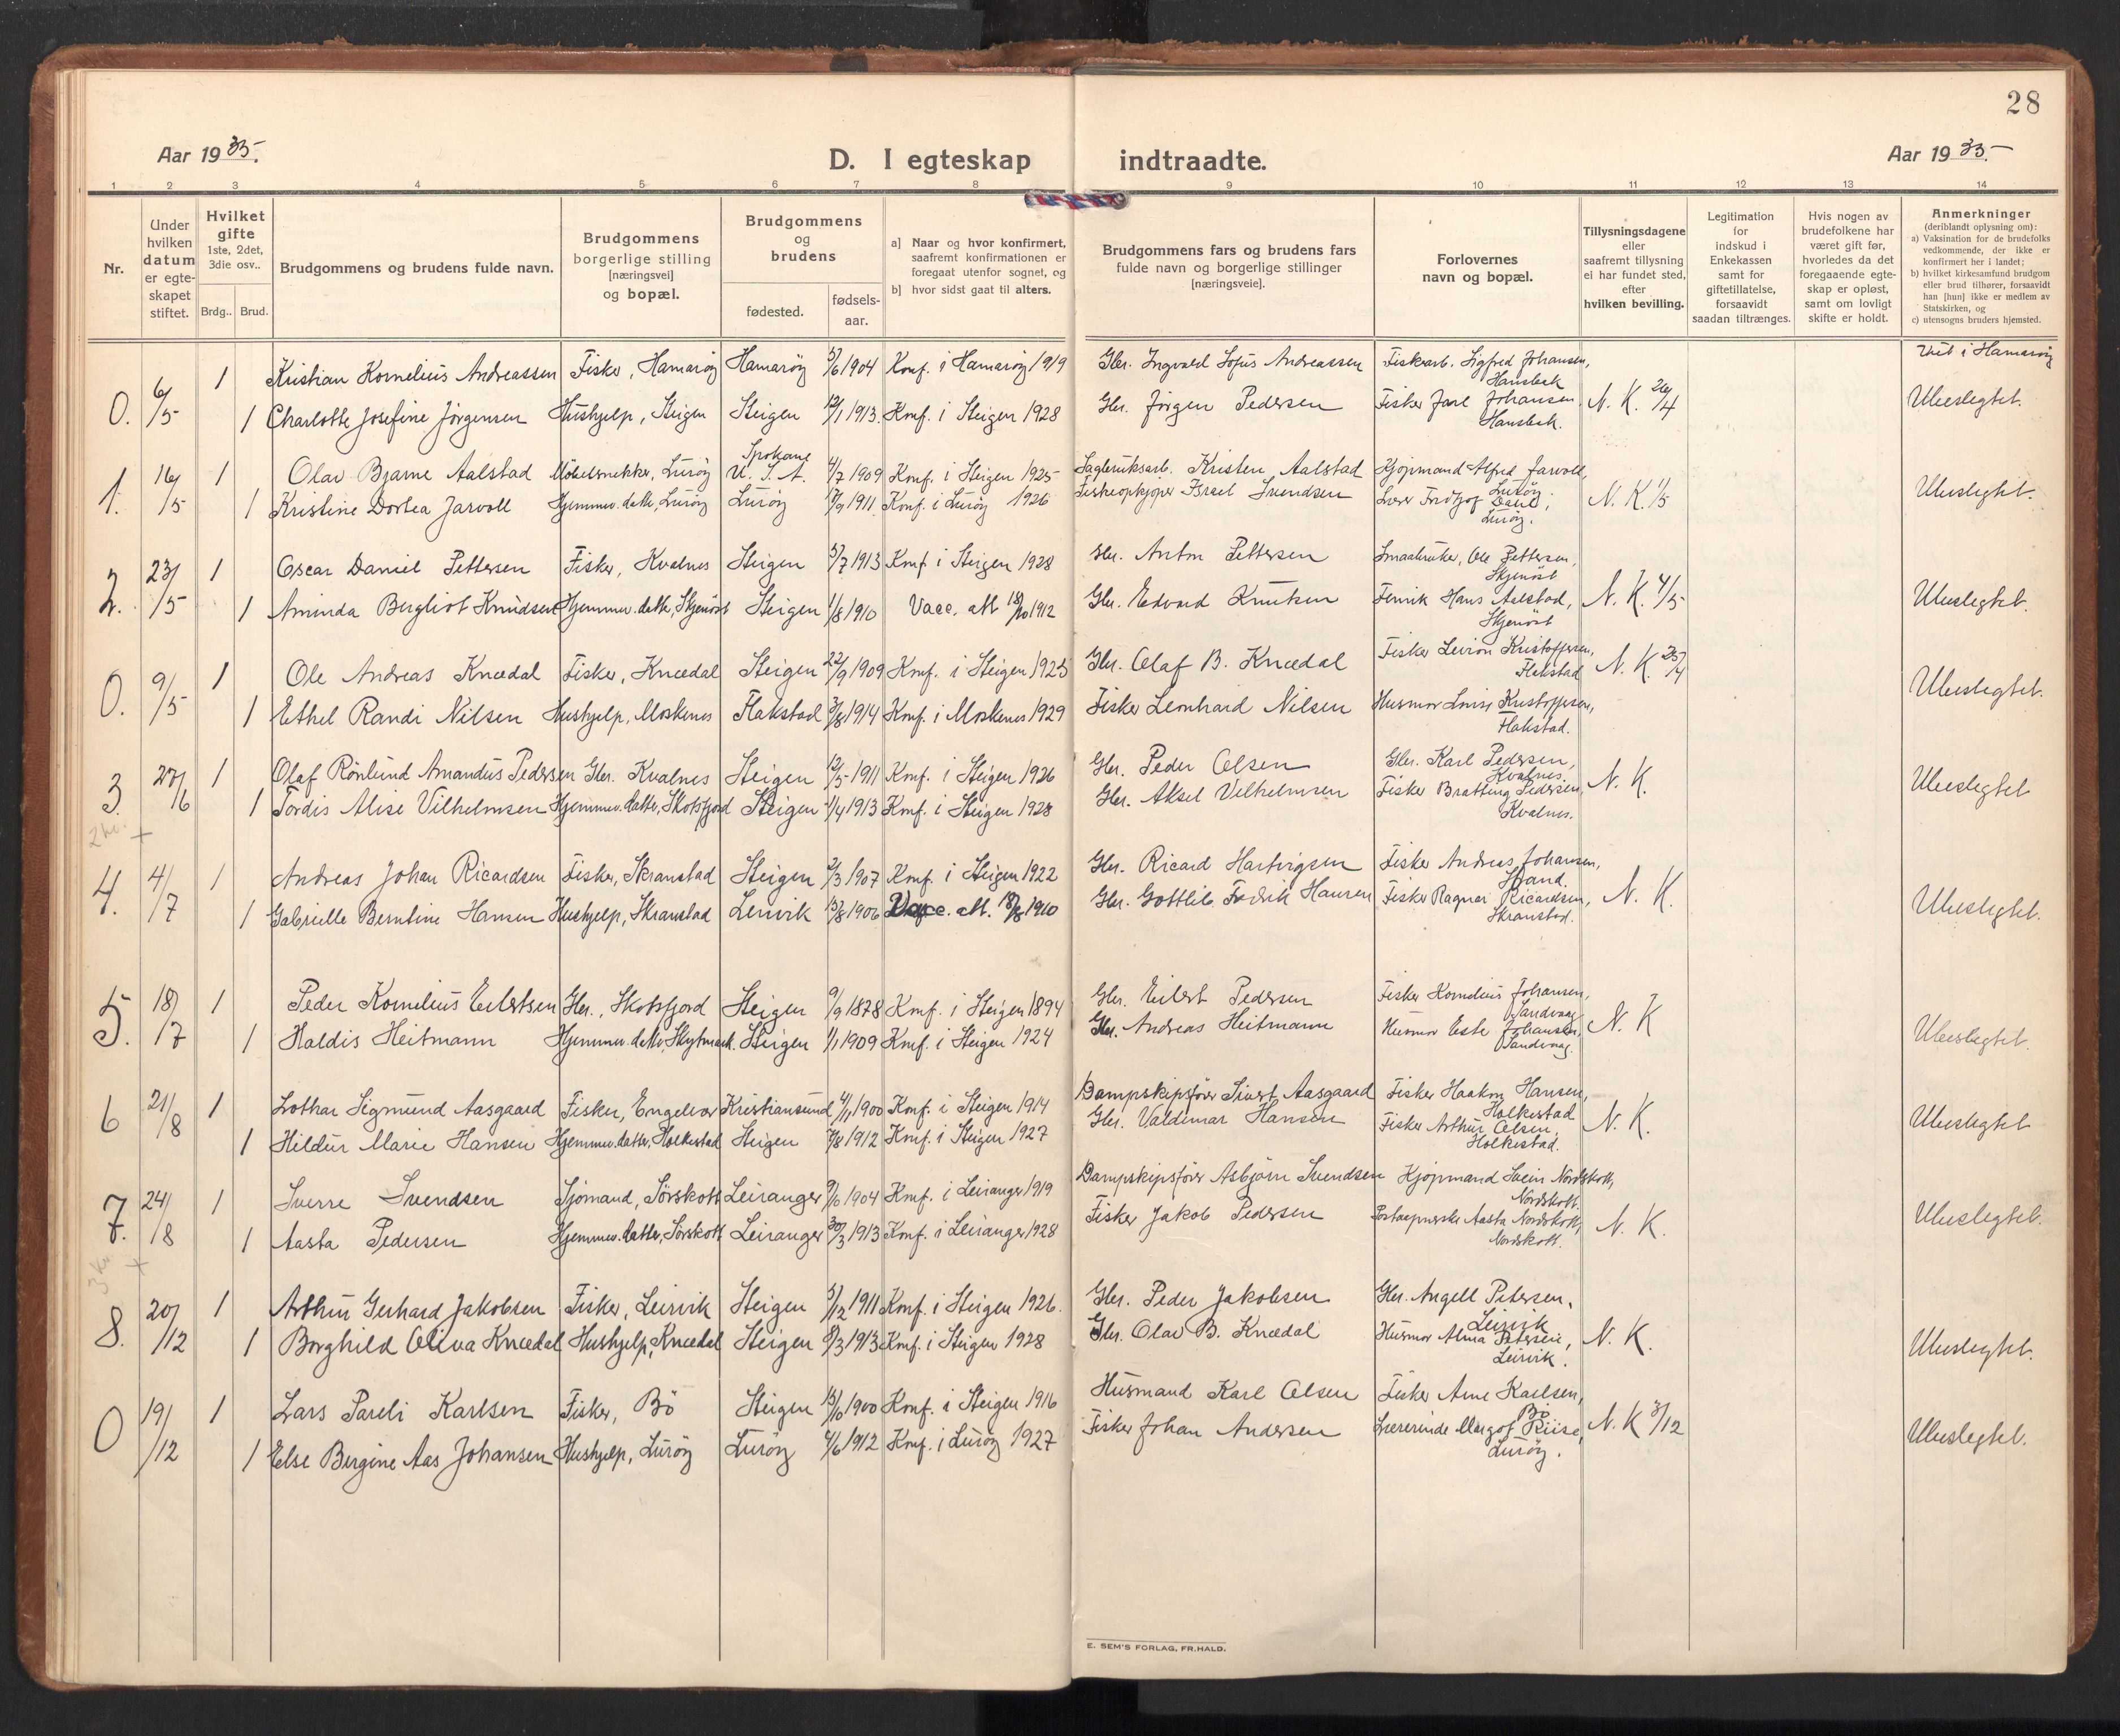 28
Aar 1935.
D. I egteskap indtraadte.
Aar 1935.
1 2 3 4 5 6 7 8 9 10 11 12 13 14
Nr.
Under hvilken datum er egte-skapet stiftet.
Hvilket gifte
1ste, 2det, 3die osv..
Brdg.. Brud.
Brudgommens og brudens fulde navn.
Brudgommens borgerlige stilling [næringsvei] og bopæl.
Brudgommens og brudens
fødested.
fødsels-aar.
a] Naar og hvor konfirmert, saafremt konfirmationen er foregaat utenfor sognet, og
b] hvor sidst gaat til alters.
Brudgommens fars og brudens fars fulde navn og borgerlige stillinger [næringsveie].
Forlovernes navn og bopæl.
Tillysningsdagene eller saafremt tillysning ei har fundet sted, efter hvilken bevilling.
Legitimation for indskud i Enkekassen samt for giftetillatelse, forsaavidt saadan tiltrænges.
Hvis nogen av brudefolkene har været gift før, hvorledes da det foregaaende egte-skap er opløst, samt om lovligt skifte er holdt.
Anmerkninger (deriblandt oplysning om):
a) Vaksination for de brudefolks vedkommende, der ikke er konfirmert her i landet;
b) hvilket kirkesamfund brudgom eller brud tilhører, forsaavidt han [hun] ikke er medlem av Statskirken, og
c) utensogns bruders hjemsted.
0. 6/5 1 Kristian Kornelius Andreassen Fisker, Hamarøy Hamarøy 5/6 1904 Konf. i Hamarøy 1919 Gbr. Ingvald Sofus Andreassen Fiskarb. Sigfred Johansen, Hansbak Viet i Hamarøy
1 Charlotte Josefine Jörgensen Hushjelp, Steigen Steigen 12/1 1913. Konf. i Steigen 1928 Gbr. Jörgen Pedersen Fisker Jarl Johansen Hansbak. N. K. 26/4 Ubeslegtet.
1. 16/5 1 Olav Bjarne Aalstad Möbelsnekker, Luröy Spokane U. S. A. 4/7 1909 Konf. i Steigen 1925 Sagbruksarb. Kristen Aalstad Kjöpmand Alfred Jarvoll, Luröy
1 Kristine Dortea Jarvoll Hjemmev. datter, Luröy Luröy 1911 Konf. i Luröy 1926 Fiskeopkjöper Israel Svendsen Lærer Fridtjof Dahl, Luröy. N. K. 1/5 Ubeslegtet.
2. 23/5 1 Oscar Daniel Pettersen Fisker, Kvalnes Steigen 5/7 1913 Konf. i Steigen 1928 Gbr. Anton Pettersen Smaabruker, Ole Pettersen, Skjenöst
1 Aminda Bergliot Knudsen Hjemmev. datter, Skjenöst Steigen 1/8 1910 Vacc. att 18/10 1912 Gbr. Edvard Knutsen Fenrik Hans Aalstad, Skjenöst N. K. 4/5 Ubeslegtet.
0. 9/5 1 Ole Andreas Knædal Fisker, Knædal Steigen 22/9 1909 Konf. i Steigen 1925 Gbr. Olaf B. Knædal Fisker Kristoffersen, Flakstad N. K. 25/4
1 Ethel Randi Nilsen Hushjelp, Moskenes Flakstad 3/8 1914 Konf. i Moskenes 1929 Fisker Leonhard Nilsen Husmor Louise Kristoffersen, Flakstad. Ubeslegtet.
3. 27/6 1 Olaf Rönlund Amandus Pedersen Gbr. Kvalnes Steigen 12/5 1911 Konf. i Steigen 1926 Gbr. Peder Olsen Gbr. Karl Pedersen, Kvalnes.
1 Tordis Alise Vilhelmsen Hjemmev. datter, Skotsfjord Steigen 1/4 1913 Konf. i Steigen 1928 Gbr. Aksel Vilhelmsen Fisker Bratting Pedersen, Kvalnes. N. K. Ubeslegtet
2 kr. +
4. 4/7 1 Andreas Johan Ricardsen Fisker, Skranstad Steigen 2/3 1907 Konf. i Steigen 1922 Gbr. Ricard Hartvigsen Fisker Andreas Johansen, Strand.
1 Gabrielle Berntine Hansen Hushjelp, Skranstad Lenvik 15/8 1906 Vacc. att. 18/8 1910 Gbr. Gottlieb Fredrik Hansen Fisker Ragnar Ricardsen, Skranstad. N. K. Ubeslegtet.
5. 18/7 1 Peder Kornelius Eilertsen Gbr., Skotsfjord Steigen 9/9 1878 Konf. i Steigen 1894 Gbr. Eilert Pedersen Fisker Kornelius Johansen, Sandvaag
1 Haldis Heitmann Hjemmev. datter, Skytmark. Steigen 1/1 1909 Konf. i Steigen 1924 Gbr. Andreas Heitmann Husmor Este Johansen, Sandvaag. N. K Ubeslegtet.
6 21/8 1 Lothar Sigmund Aasgaard Fisker, Engelvær Kristiansund 4/11 1900 Konf. i Steigen 1914 Dampskipsförer Sivert Aasgaard Fisker Haakon Hansen, Holkestad
1 Hildur Marie Hansen Hjemmev. datter, Holkestad Steigen 7/8 1912 Konf. i Steigen 1927 Gbr. Valdemar Hansen Fisker Arthur Olsen, Holkestad. N. K. Ubeslegtet
7. 24/8 1 Sverre Svendsen Sjömand, Sörskott Leiranger 9/6 1904 Konf. i Leiranger 1919 Dampskipsförer Asbjörn Svendsen Kjöpmand Svein Nordskott, Nordskott.
1 Aasta Pedersen Hjemmev. datter, Sörskott Leiranger 30/3 1913 Konf. i Leiranger 1928 Fisker Jakob Pedersen Postaapnerske Aasta Nordskott, Nordskott. N. K. Ubeslegtet.
3 kr +
8. 20/12 1 Arthur Gerhard Jakobsen Fisker, Leirvik Steigen 5/12 1911 Konf. i Steigen 1926. Gbr. Peder Jakobsen Gbr. Angell Petersen, Leirvik
1 Borghild Oliva Knædal Hushjelp, Knædal Steigen 8/3 1913 Konf. i Steigen 1928 Gbr. Olav B. Knædal Husmor Alma Petersen, Leirvik. N. K. Ubeslegtet.
0 19/12 1 Lars Pareli Karlsen Fisker, Bö Steigen 13/10 1900 Konf. i Steigen 1916 Husmand Karl Olsen Fisker Arne Karlsen, Bö
1 Else Bergine Aas Johansen Hushjelp, Luröy Luröy 4/6 1912 Konf. i Luröy 1927 Fisker Johan Andersen Lærerinde Margot Riise, Luröy. N. K 3/12 Ubeslegtet.
E. SEM'S FORLAG, FR.HALD.